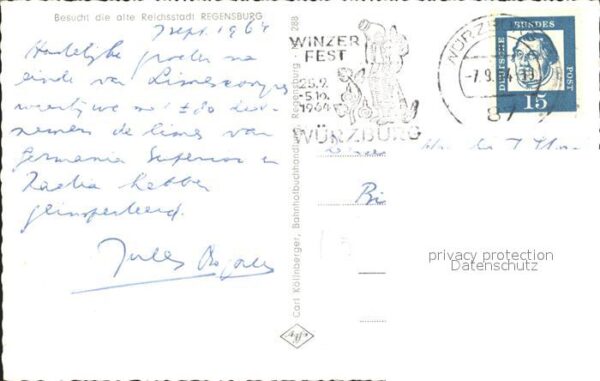 Besucht die alte Reichsstadt REGENSBURG
7 sept. 1964
Hartelijke groeten na
einde van Limescongres
waarbij we met ± 80 deel-
nemers de limes van
Germania Superior en
Raetia hebben
geïnspecteerd.
Jules
WINZER
FEST
25.9.
-5.10.
1964
WÜRZBURG
-7.9.64-19
87
DEUTSCHE
BUNDES
POST
15
Carl Köllnberger, Bahnhofbuchhandlung, Regensburg
288
privacy protection
Datenschutz